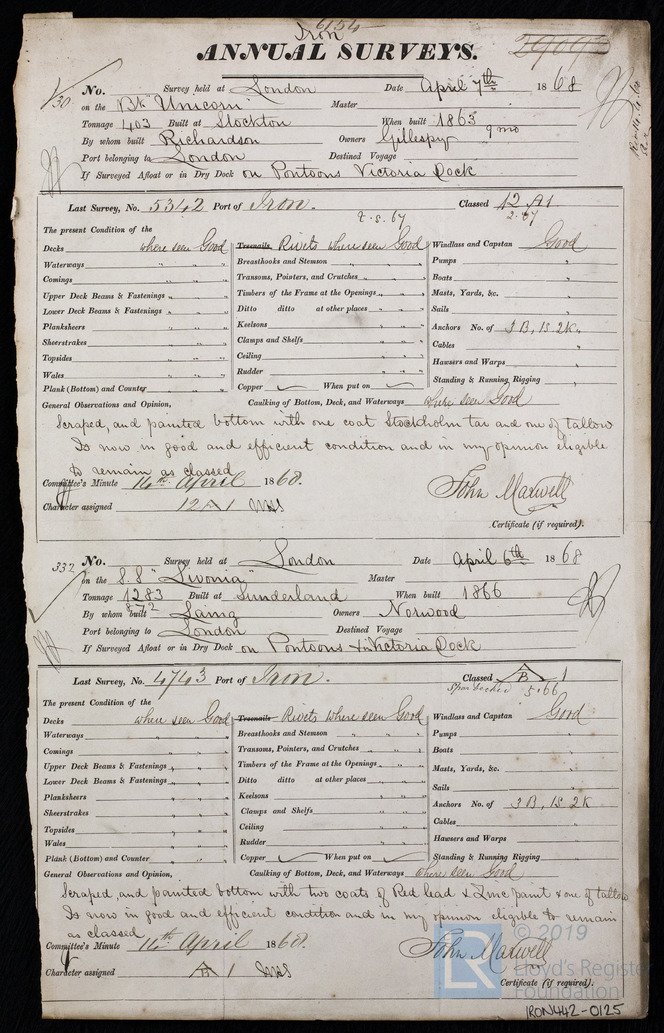 6154
Iron
ANNUAL SURVEYS.
/30 No. Survey held at London Date April 7th 1868
on the Bk "Unicorn" Master
Tonnage 403 Built at Stockton When built 1863 9 mo
By whom built Richardson Owners Gillespy
Port belonging to London Destined Voyage
If Surveyed Afloat or in Dry Dock on Pontoons Victoria Dock
Last Survey, No. 5342 Port of Iron. Classed 12 A1
2.67
The present Condition of the
Decks where seen Good Treenails Rivets where seen Good Windlass and Capstan Good
Waterways " " Breasthooks and Stemson " " Pumps "
Comings " " Transoms, Pointers, and Crutches " " Boats "
Upper Deck Beams & Fastenings " " Timbers of the Frame at the Openings " " Masts, Yards, &c. "
Lower Deck Beams & Fastenings " " Ditto ditto at other places " " Sails "
Planksheers " " Keelsons " " Anchors No. of 3 B, 1S. 2K.
Sheerstrakes " " Clamps and Shelfs " " Cables "
Topsides " " Ceiling " " Hawsers and Warps "
Wales " " Rudder " " Standing & Running Rigging "
Plank (Bottom) and Counter " " Copper When put on
General Observations and Opinion, Caulking of Bottom, Deck, and Waterways where seen Good
Scraped, and painted bottom with one coat Stockholm tar and one of tallow
Is now in good and efficient condition and in my opinion eligible
to remain as classed
Committee's Minute 14th April 1868. John Maxwell
Character assigned 12 A 1
Certificate (if required).
332 No. Survey held at London Date April 6th 1868
on the S.S "Livonia" Master
Tonnage 1283 Built at Sunderland When built 1866
872
By whom built Laing Owners Norwood
Port belonging to London Destined Voyage
If Surveyed Afloat or in Dry Dock on Pontoons in Victoria Dock
Last Survey, No. 4743 Port of Iron. Classed B 1
Spar Decked 5.66
The present Condition of the
Decks where seen Good Treenails Rivets where seen Good Windlass and Capstan Good
Waterways " " Breasthooks and Stemson " " Pumps "
Comings " " Transoms, Pointers, and Crutches " " Boats "
Upper Deck Beams & Fastenings " " Timbers of the Frame at the Openings " " Masts, Yards, &c. "
Lower Deck Beams & Fastenings " " Ditto ditto at other places " " Sails "
Planksheers " " Keelsons " " Anchors No. of 3 B, 1S 2K
Sheerstrakes " " Clamps and Shelfs " " Cables "
Topsides " " Ceiling " " Hawsers and Warps "
Wales " " Rudder " " Standing & Running Rigging "
Plank (Bottom) and Counter " " Copper When put on
General Observations and Opinion, Caulking of Bottom, Deck, and Waterways where seen Good
Scraped, and painted bottom with two coats of Red lead & Zinc paint & one of tallow
Is now in good and efficient condition and in my opinion eligible to remain
as classed
Committee's Minute 14th April 1868. John Maxwell
Character assigned B 1
Certificate (if required).
© 2019
LR Lloyd's Register
Foundation
IRON442-0125